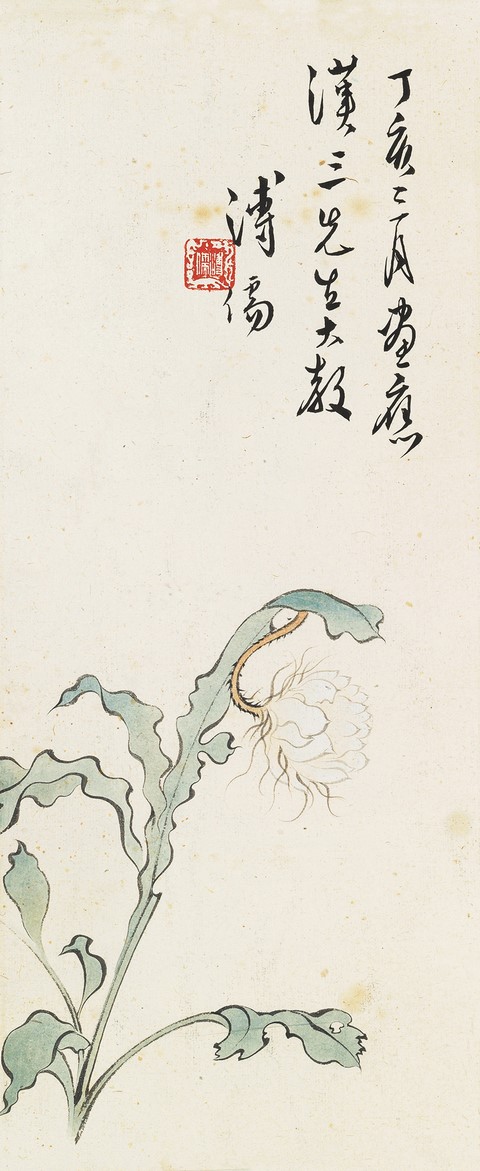 丁亥二月畫應
漢三先生大教
溥儒
溥儒